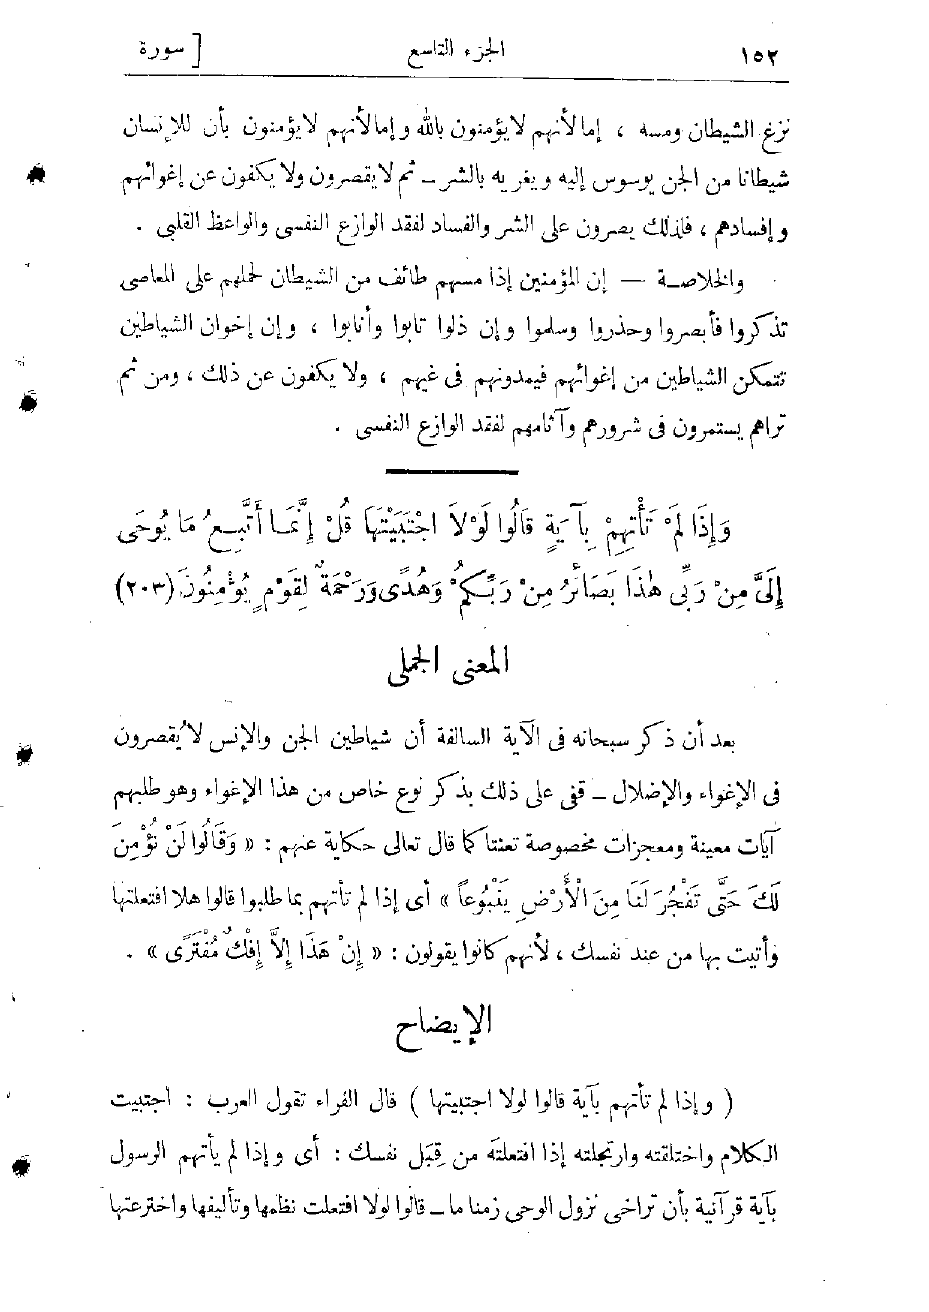 ١٥٢ الجزء التاسع [ سورة
نزغ الشيطان ومسه ، إما لأنهم لا يؤمنون بالله وإما لأنهم لا يؤمنون بأن للإنسان
شيطانا من الجن يوسوس إليه ويغريه بالشر ــ ثم لا يقصرون ولا يكفون عن إغوائهم
وإفسادهم ، فلذلك يصرون على الشر والفساد لفقد الوازع النفسى والواعظ القلبى .
والخلاصة — إن المؤمنين إذا مسهم طائف من الشيطان لحملهم على المعاصى
تذكروا فأبصروا وحذروا وسلموا وإن ذلوا تابوا وأنابوا ، وإن إخوان الشياطين
تتمكن الشياطين من إغوائهم فيمدونهم فى غيهم ، ولا يكفون عن ذلك ، ومن ثم
تراهم يستمرون فى شرورهم وآثامهم لفقد الوازع النفسى .
وَإِذَا لَمْ تَأْتِهِمْ بِآيَةٍ قَالُوا لَوْلَا اجْتَبَيْتَهَا قُلْ إِنَّمَا أَتَّبِعُ مَا يُوحَى
إِلَىَّ مِنْ رَبِّى هٰذَا بَصَائِرُ مِنْ رَبِّكُمْ وَهُدًى وَرَحْمَةٌ لِقَوْمٍ يُؤْمِنُونَ (٢٠٣)
المعنى الجملى
بعد أن ذكر سبحانه فى الآية السالفة أن شياطين الجن والإنس لا يُقصرون
فى الإغواء والإضلال ــ قفى على ذلك بذكر نوع خاص من هذا الإغواء وهو طلبهم
آيات معينة ومعجزات مخصوصة تعنتا كما قال تعالى حكاية عنهم : « وَقَالُوا لَنْ نُؤْمِنَ
لَكَ حَتَّى تَفْجُرَ لَنَا مِنَ الْأَرْضِ يَنْبُوعاً » أى إذا لم تأتهم بما طلبوا قالوا هلا افتعلتها
وأتيت بها من عند نفسك ، لأنهم كانوا يقولون : « إِنْ هَذَا إِلاَّ إِفْكٌ مُفْتَرًى » .
الإيضاح
( وإذا لم تأتهم بآية قالوا لولا اجتبيتها ) قال الفراء تقول العرب : اجتبيت
الكلام واختلقته وارتجلته إذا افتعلتَه من قِبَل نفسك : أى وإذا لم يأتهم الرسول
بآية قرآنية بأن تراخى نزول الوحى زمنا ما ــ قالوا لولا افتعلت نظمها وتأليفها واخترعتها